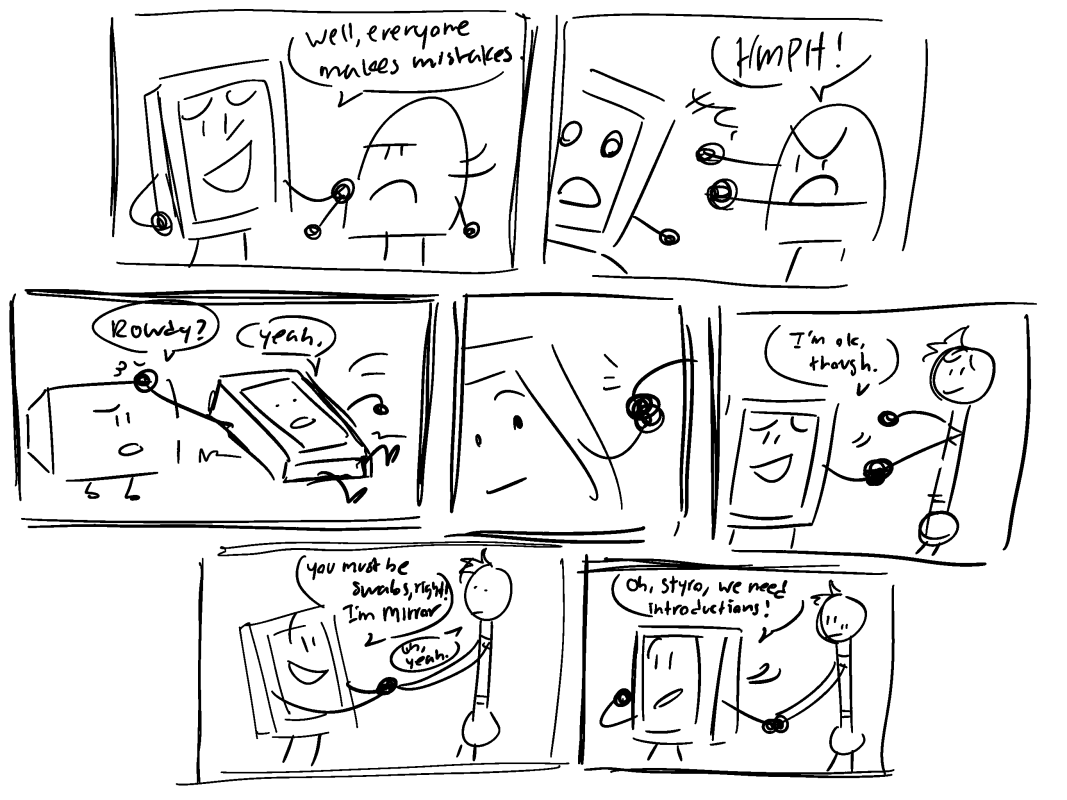 Well, everyone
makes mistakes.
HMPH!
Rowdy?
yeah.
I'm ok,
though.
you must be
Swabs, right!
I'm Mirror
uh,
yeah.
Oh, Styro, we need
introductions!